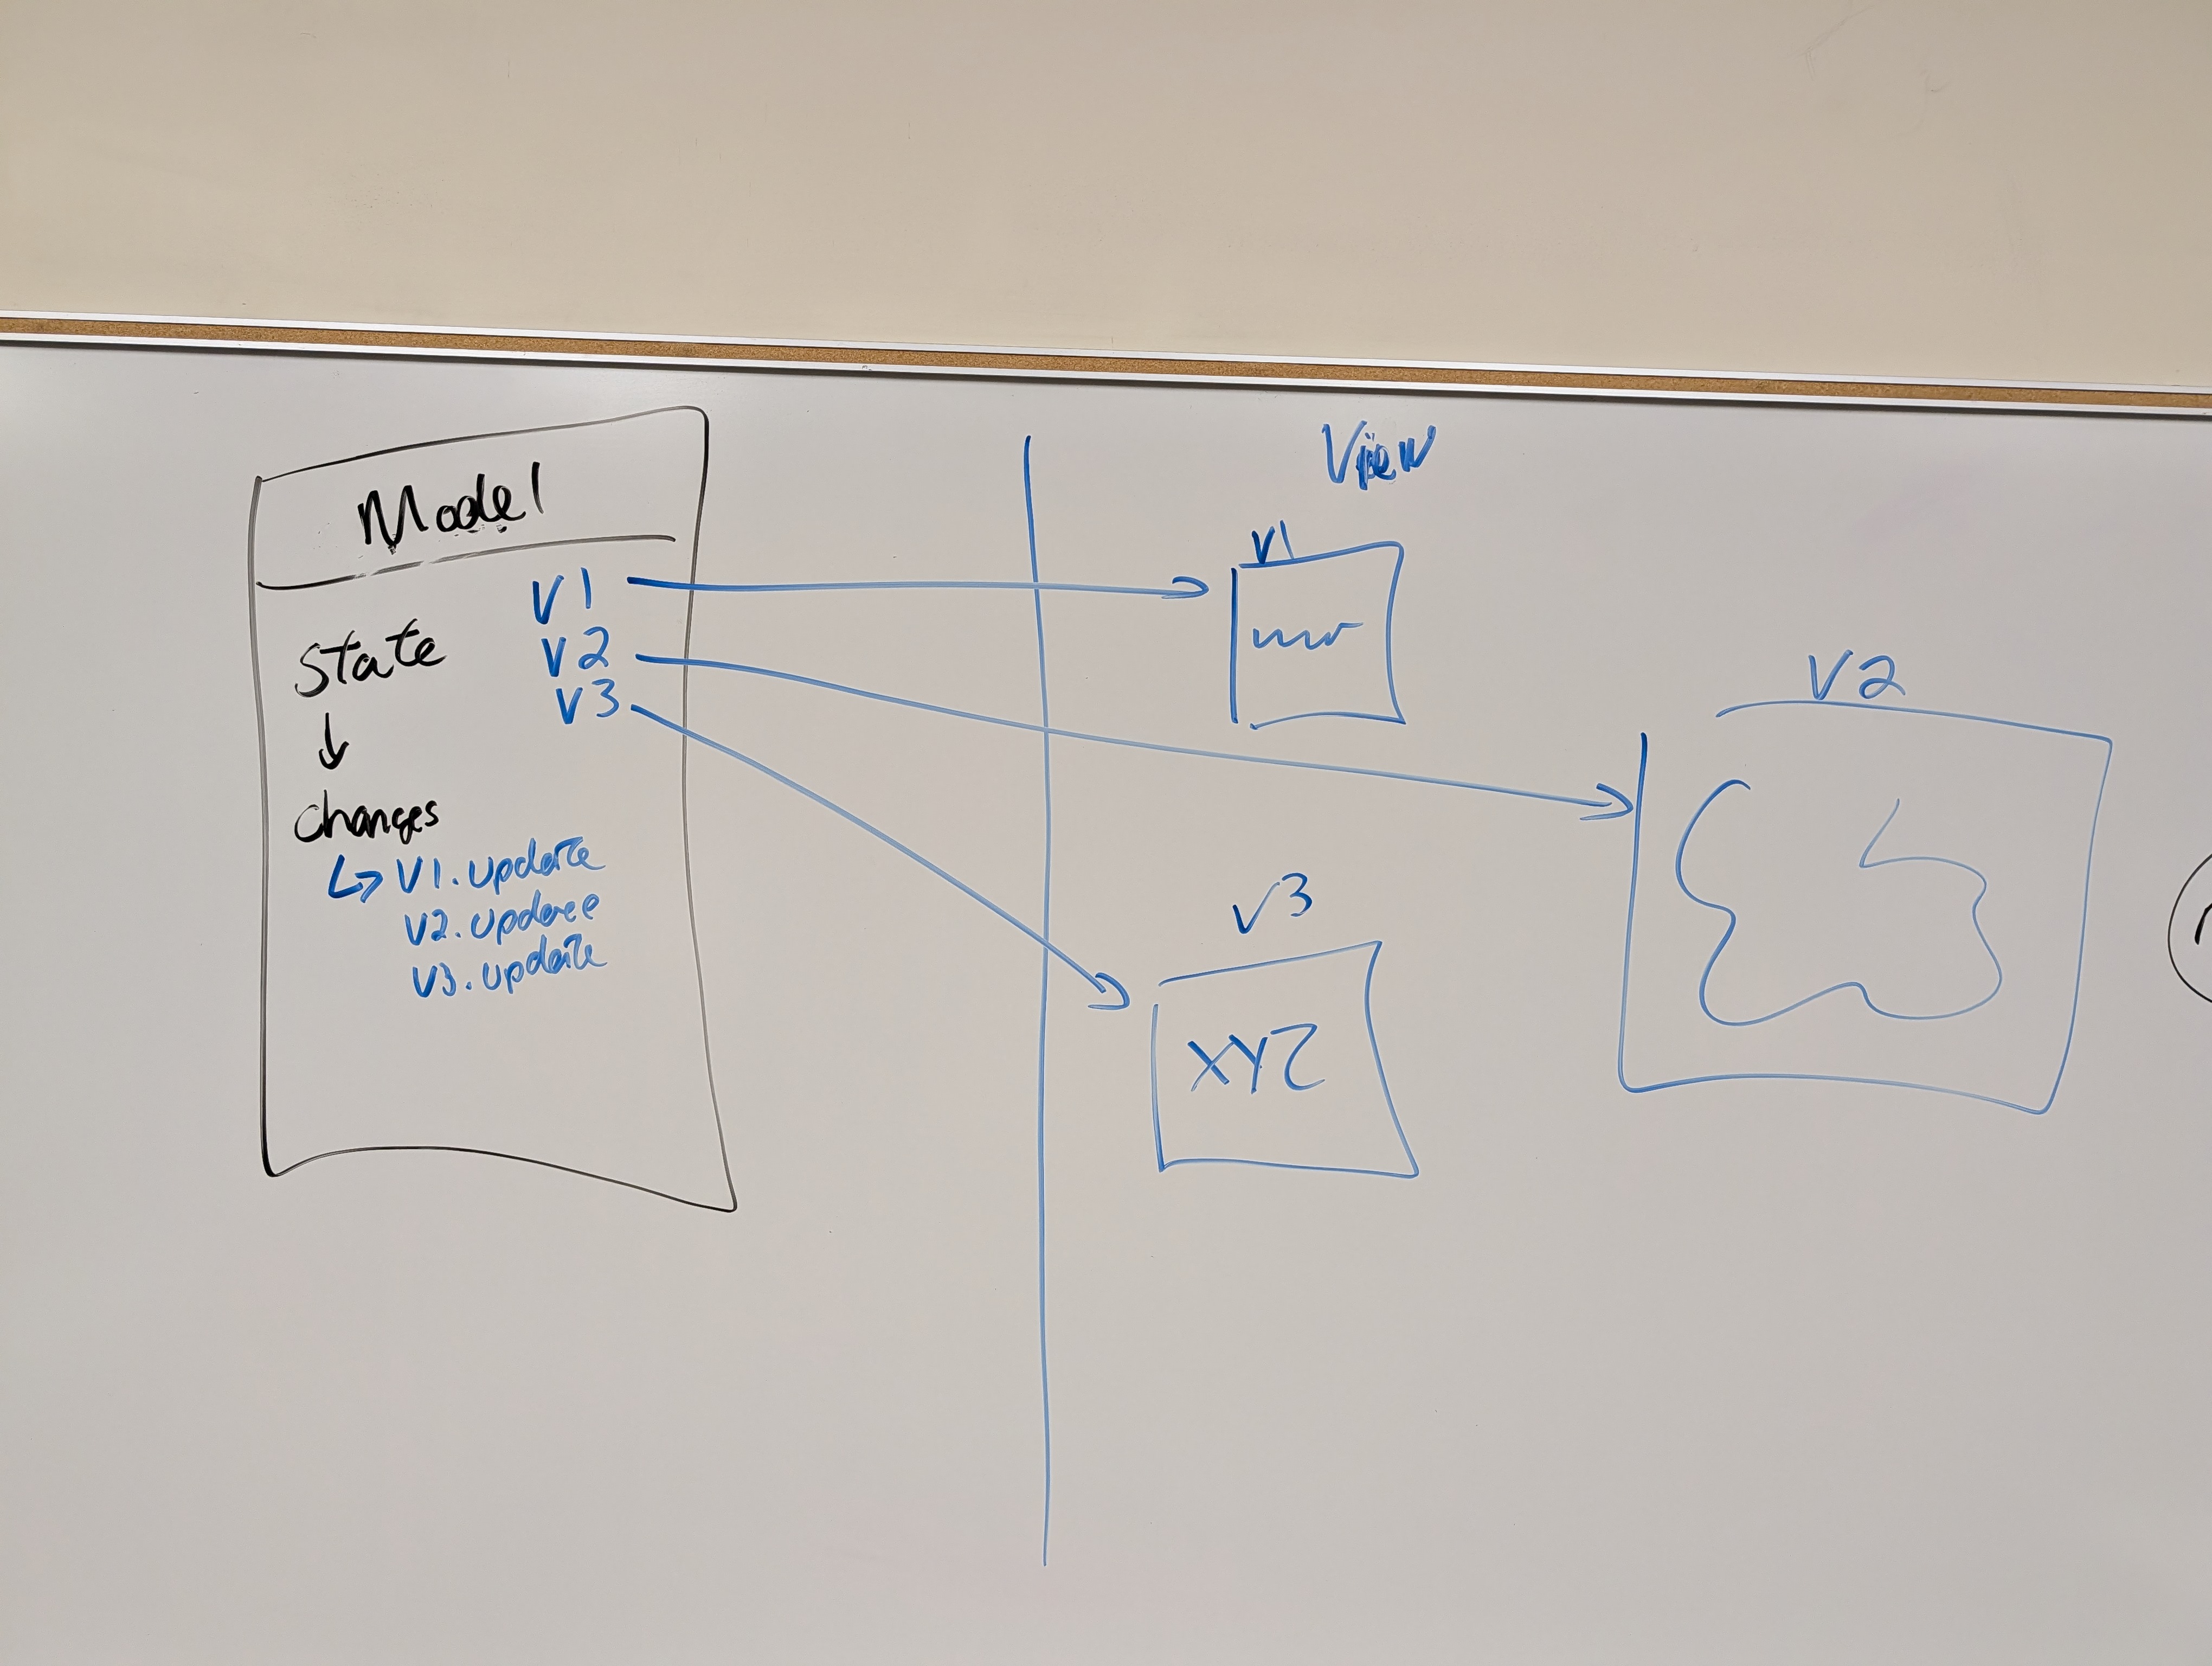 Model
V1
V2
V3
State
↓
changes
↳ V1.update
V2.update
V3.update
View
V1
V2
V3
XYZ